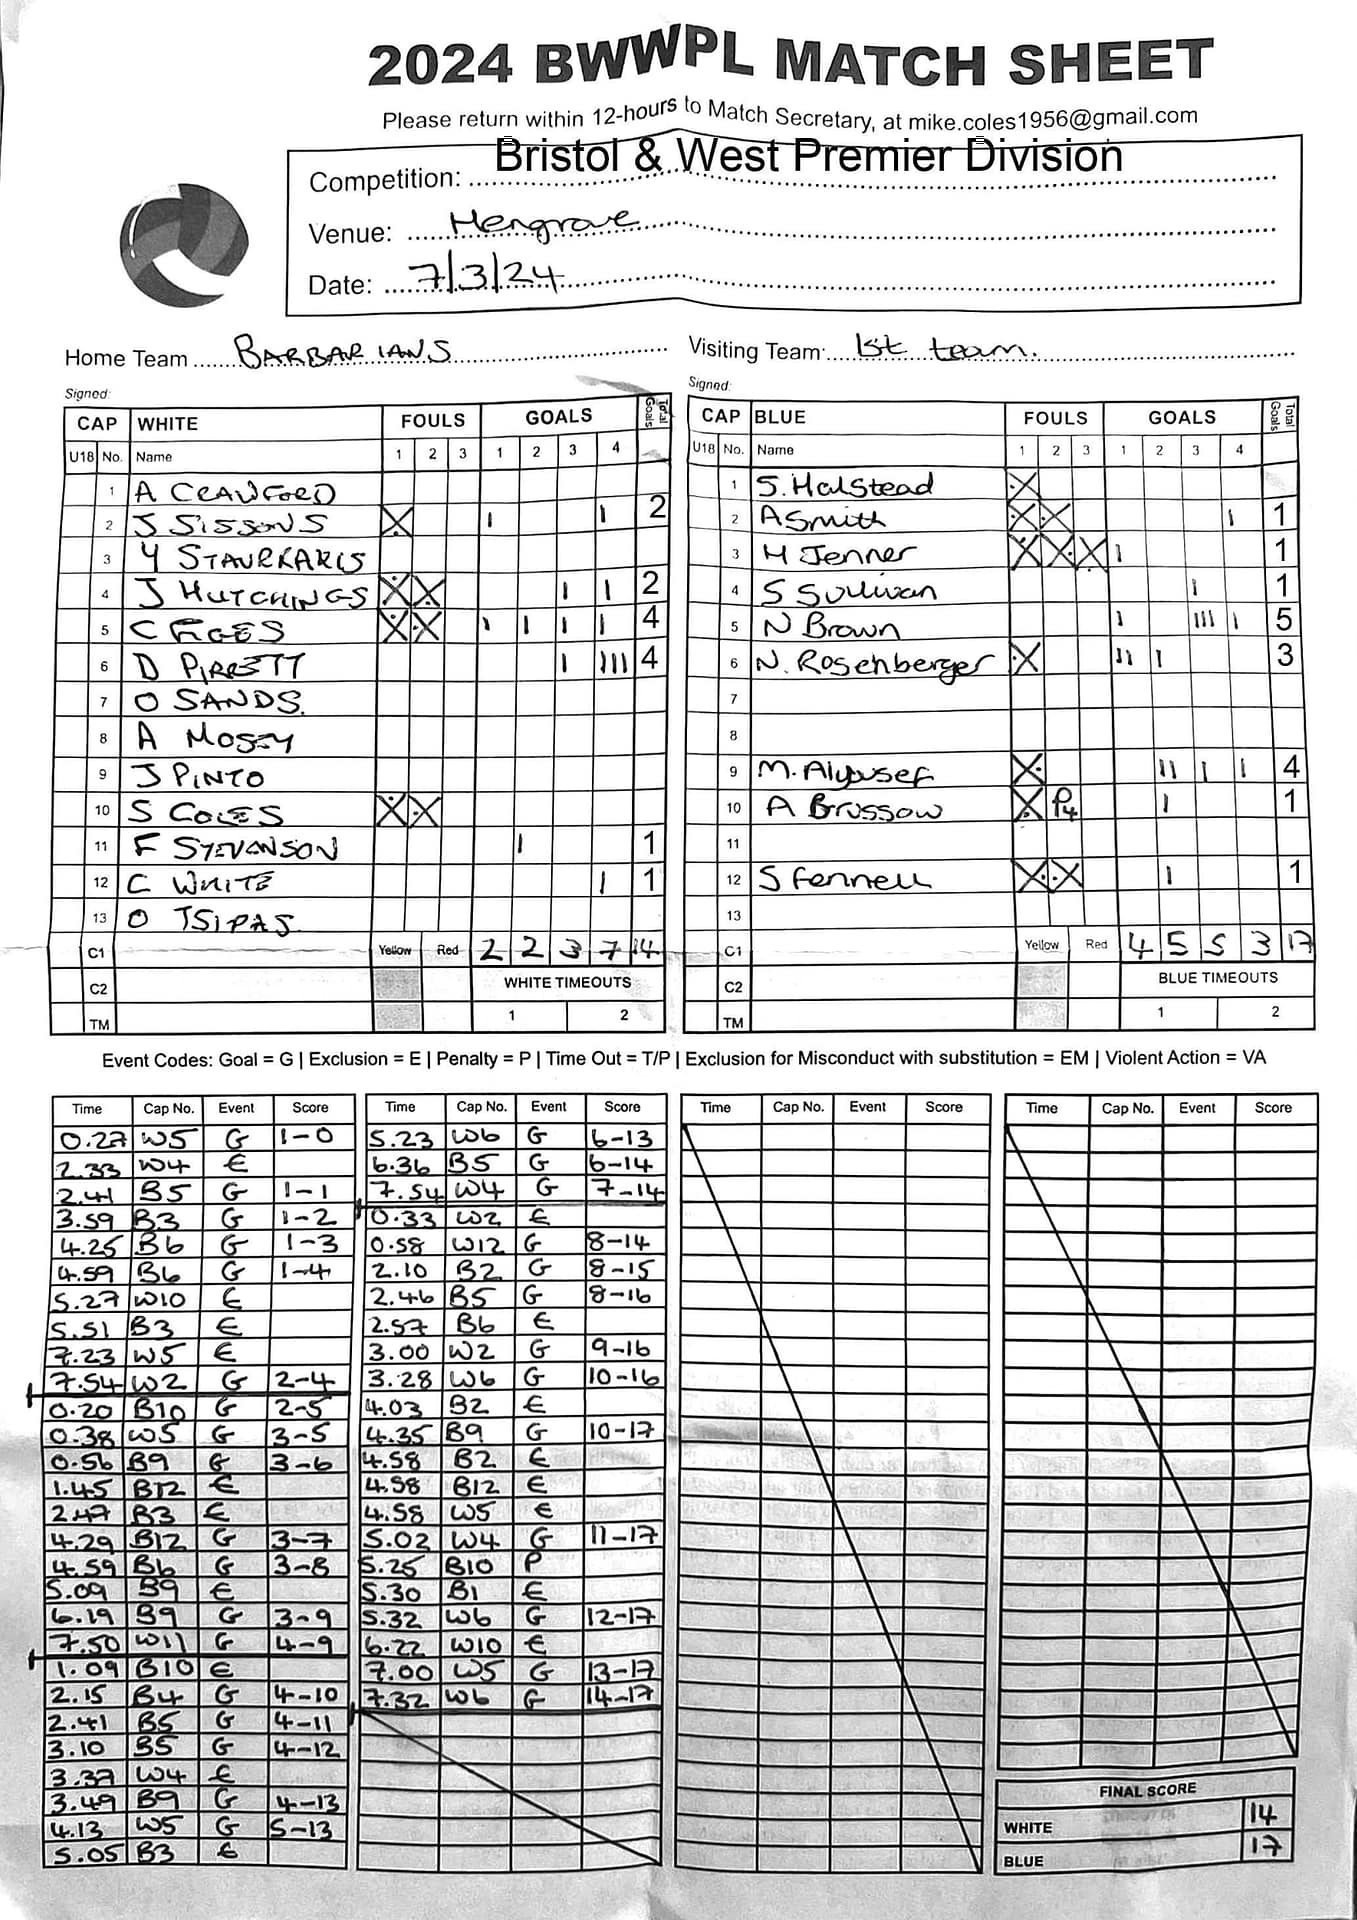 2024 BWWPL MATCH SHEET
Please return within 12-hours to Match Secretary, at mike.coles1956@gmail.com
Competition: Bristol & West Premier Division
Venue: Hengrove
Date: 7/3/24
Home Team BARBARIANS
Visiting Team: 1st team.
Signed:
Signed:
CAP WHITE FOULS GOALS Total Goals
U18 No. Name 1 2 3 1 2 3 4
1 A CRAWFORD
2 J SISSONS X I I 2
3 Y STAVRKAKIS
4 J HUTCHINGS X X I I 2
5 C EGES X X I I I I 4
6 D PIRRETT I III 4
7 O SANDS.
8 A MOSEY
9 J PINTO
10 S COLES X X
11 F STEVANSON I 1
12 C WHITE I 1
13 O TSIPAS
C1 Yellow Red 2 2 3 7 14
C2 WHITE TIMEOUTS
TM 1 2
CAP BLUE FOULS GOALS Total Goals
U18 No. Name 1 2 3 1 2 3 4
1 S. Halstead X
2 A Smith X X I 1
3 H Jenner X X X I 1
4 S Sullivan I 1
5 N Brown I III I 5
6 N. Rosenberger X II I 3
7
8
9 M. Alyousef X II I I 4
10 A Brussow X P4 I 1
11
12 S Fennell X X I 1
13
C1 Yellow Red 4 5 5 3 17
C2 BLUE TIMEOUTS
TM 1 2
Event Codes: Goal = G | Exclusion = E | Penalty = P | Time Out = T/P | Exclusion for Misconduct with substitution = EM | Violent Action = VA
Time Cap No. Event Score
0.27 W5 G 1-0
2.33 W4 E
2.41 B5 G 1-1
3.59 B3 G 1-2
4.25 B6 G 1-3
4.59 B6 G 1-4
5.27 W10 E
5.51 B3 E
7.23 W5 E
7.54 W2 G 2-4
0.20 B10 G 2-5
0.38 W5 G 3-5
0.56 B9 G 3-6
1.45 B12 E
2.47 B3 E
4.29 B12 G 3-7
4.59 B6 G 3-8
5.09 B9 E
6.19 B9 G 3-9
7.50 W11 G 4-9
1.09 B10 E
2.15 B4 G 4-10
2.41 B5 G 4-11
3.10 B5 G 4-12
3.37 W4 E
3.49 B9 G 4-13
4.13 W5 G 5-13
5.05 B3 E
Time Cap No. Event Score
5.23 W6 G 6-13
6.36 B5 G 6-14
7.54 W4 G 7-14
0.33 W2 E
0.58 W12 G 8-14
2.10 B2 G 8-15
2.46 B5 G 8-16
2.57 B6 E
3.00 W2 G 9-16
3.28 W6 G 10-16
4.03 B2 E
4.35 B9 G 10-17
4.58 B2 E
4.58 B12 E
4.58 W5 E
5.02 W4 G 11-17
5.25 B10 P
5.30 B1 E
5.32 W6 G 12-17
6.22 W10 E
7.00 W5 G 13-17
7.32 W6 G 14-17
Time Cap No. Event Score
Time Cap No. Event Score
FINAL SCORE
WHITE 14
BLUE 17